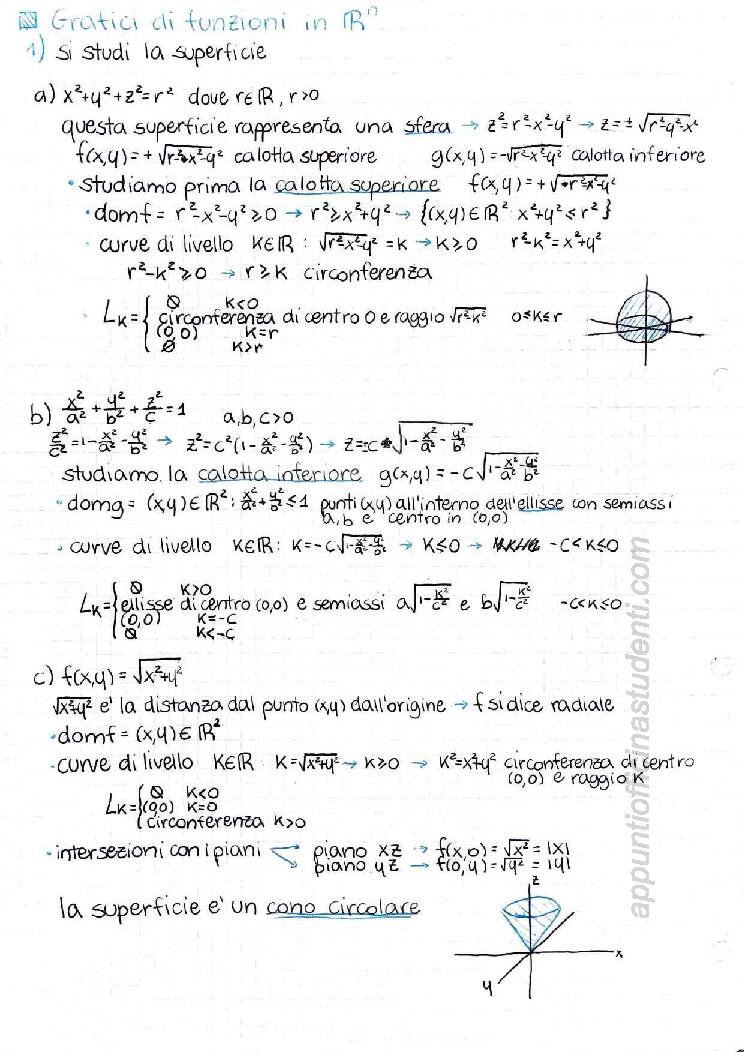 Grafici di funzioni in ℝⁿ
1) si studi la superficie
a) x²+y²+z²=r² dove r∈ℝ, r>0
questa superficie rappresenta una sfera → z²=r²-x²-y² → z=±√r²-y²-x²
f(x,y)=+√r²-x²-y² calotta superiore g(x,y)=-√r²-x²-y² calotta inferiore
• studiamo prima la calotta superiore f(x,y)=+√+r²-x²-y²
• domf = r²-x²-y²≥0 → r²≥x²+y² → {(x,y)∈ℝ²: x²+y²≤r²}
• curve di livello K∈ℝ: √r²-x²-y² = K → K≥0 r²-K²=x²+y²
r²-K²≥0 → r≥K circonferenza
• L_K = { ∅ K<0
circonferenza di centro O e raggio √r²-K² 0≤K≤r
(0,0) K=r
∅ K>r
b) x²/a² + y²/b² + z²/c = 1 a,b,c>0
z²/c² = 1-x²/a²-y²/b² → z²=c²(1-x²/a²-y²/b²) → z=±c√1-x²/a²-y²/b²
studiamo la calotta inferiore g(x,y)=-c√1-x²/a²-y²/b²
• domg = (x,y)∈ℝ²: x²/a²+y²/b²≤1 punti (x,y) all'interno dell'ellisse con semiassi
a,b e centro in (0,0)
• curve di livello K∈ℝ: K=-c√1-x²/a²-y²/b² → K≤0 → -c<K≤0
L_K = { ∅ K>0
ellisse di centro (0,0) e semiassi a√1-K²/c² e b√1-K²/c² -c<K≤0
(0,0) K=-c
∅ K<-c
c) f(x,y)=√x²+y²
√x²+y² e' la distanza dal punto (x,y) dall'origine → f si dice radiale
• domf = (x,y)∈ℝ²
• curve di livello K∈ℝ K=√x²+y² → K≥0 → K²=x²+y² circonferenza di centro
(0,0) e raggio K
L_K = { ∅ K<0
(0,0) K=0
circonferenza K>0
• intersezioni con i piani piano xz → f(x,0)=√x²=|x|
piano yz → f(0,y)=√y²=|y|
la superficie e' un cono circolare
z
x
y
appuntiofficinastudenti.com